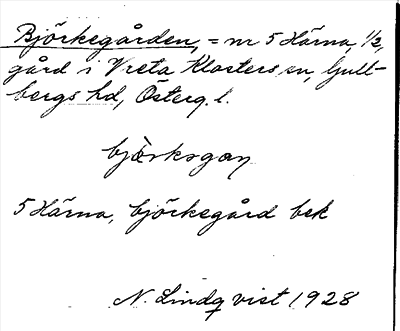 Björkegården, = nr 5 Härna, 1/2,
gård i Vreta Klosters sn, Gull-
bergs hd, Österg. l.
bjærksgaɳ
5 Härna, björkegård bek
N. Lindqvist 1928